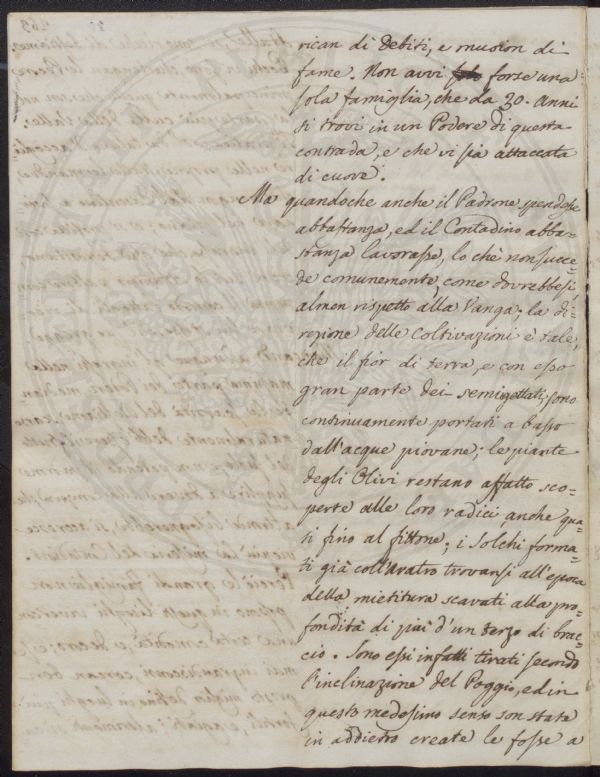 rican di Debiti, e muoion di
fame. Non avvi forse una
sola famiglia, che da 30. Anni
si trovi in un Podere di questa
contrada, e che vi sia attaccata
di cuore.
Ma quandoche anche il Padrone spendesse
abbastanza, ed il Contadino abba-
stanza lavorasse, lo chè non succe-
de comunemente, come dovrebbesi,
almen rispetto alla Vanga; la di-
rezione delle Coltivazioni è tale,
che il fior di terra, e con esso
gran parte dei semi gettati, sono
continuamente portati a basso
dall'acque piovane; le piante
degli Olivi restano affatto sco-
perte alle loro radici anche qua-
si fino al fittone; i Solchi forma-
ti già coll'aratro trovansi all'epoca
della mietitura scavati alla pro-
fondità di più d'un terzo di brac-
cio. Sono essi infatti tirati secondo
l'inclinazione del Poggio, ed in
questo medesimo senso son state
in addietro create le fosse a